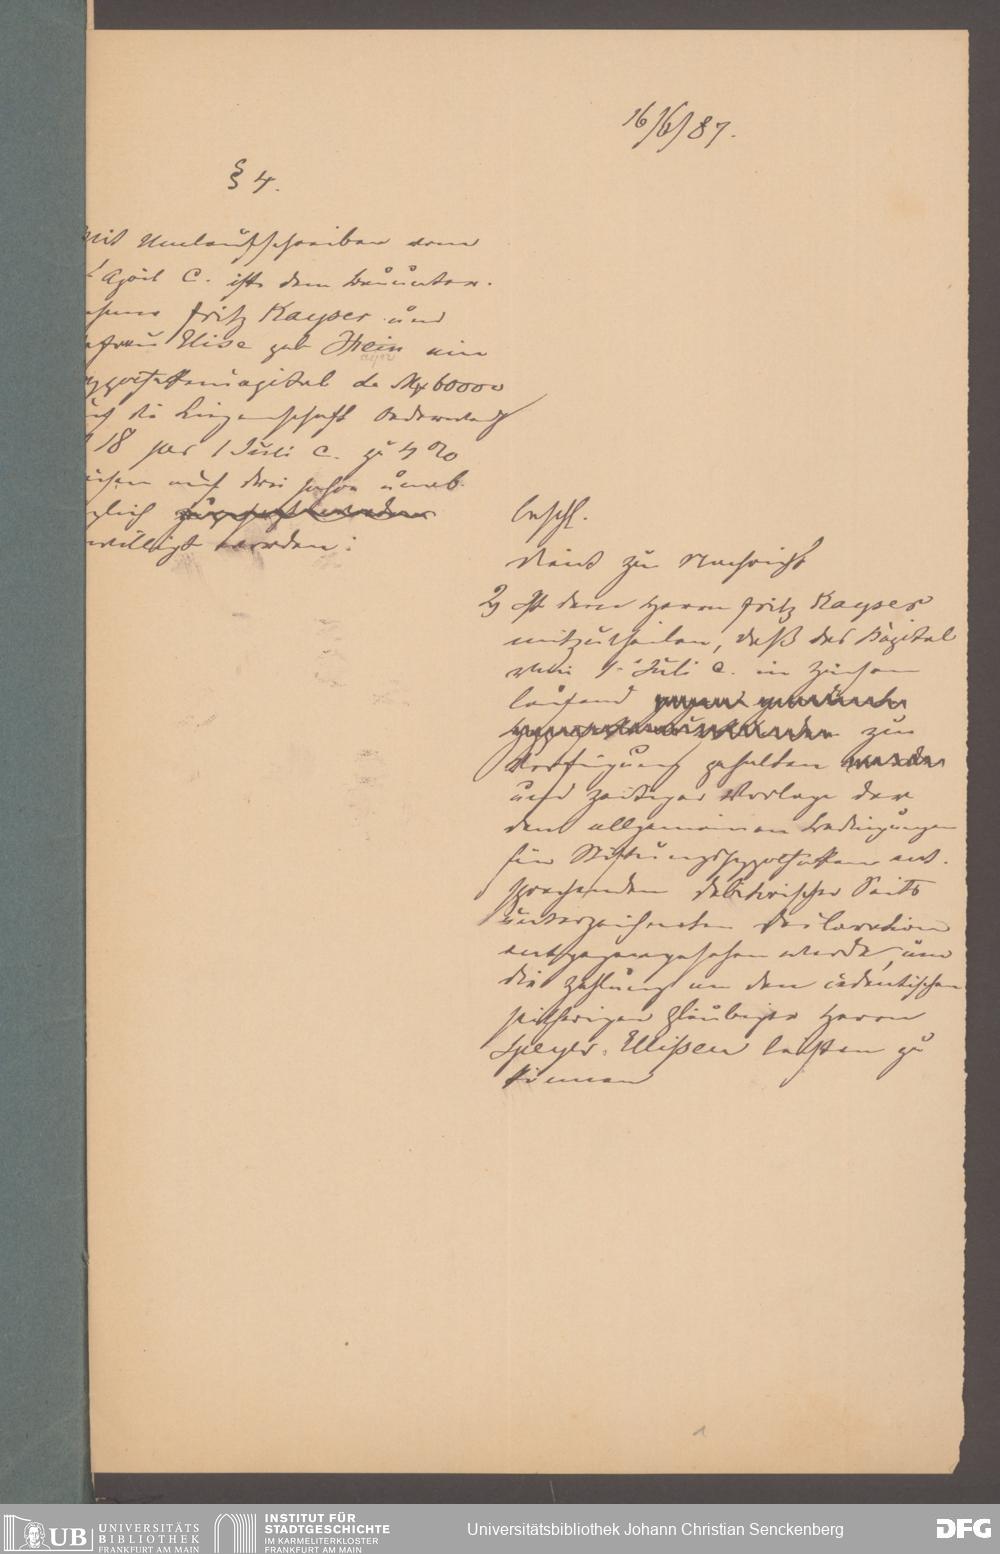 16/6/87.
§ 4.
mit Umlaufschreiben vom
April c. ist dem Bauunter-
Fritz Kayser und
Elise geb Thein ein
de M 60000
auf die Liegenschaft Oederweg
18 per 1 Juli c. zu 4 %
auf drei Jahre unab-
willigt worden:
beschl.
dient zur Nachricht
2) Ist dem Herrn Fritz Kayser
mitzutheilen, daß das Kapital
vom 1. Juli c. in Zinsen
laufend zur
Verfügung gehalten werde
und zeitiger Vorlage der
den allgemeinen Bedingungen
für Stiftungshypotheken ent-
sprechenden debitorischer Seits
unterzeichneten Declaration
entgegengesehen werde, um
die Zahlung an den
seitherigen Gläubiger Herrn
Speyer-Ellissen leisten zu
können
UB UNIVERSITÄTS
BIBLIOTHEK
FRANKFURT AM MAIN
INSTITUT FÜR
STADTGESCHICHTE
IM KARMELITERKLOSTER
FRANKFURT AM MAIN
Universitätsbibliothek Johann Christian Senckenberg
DFG